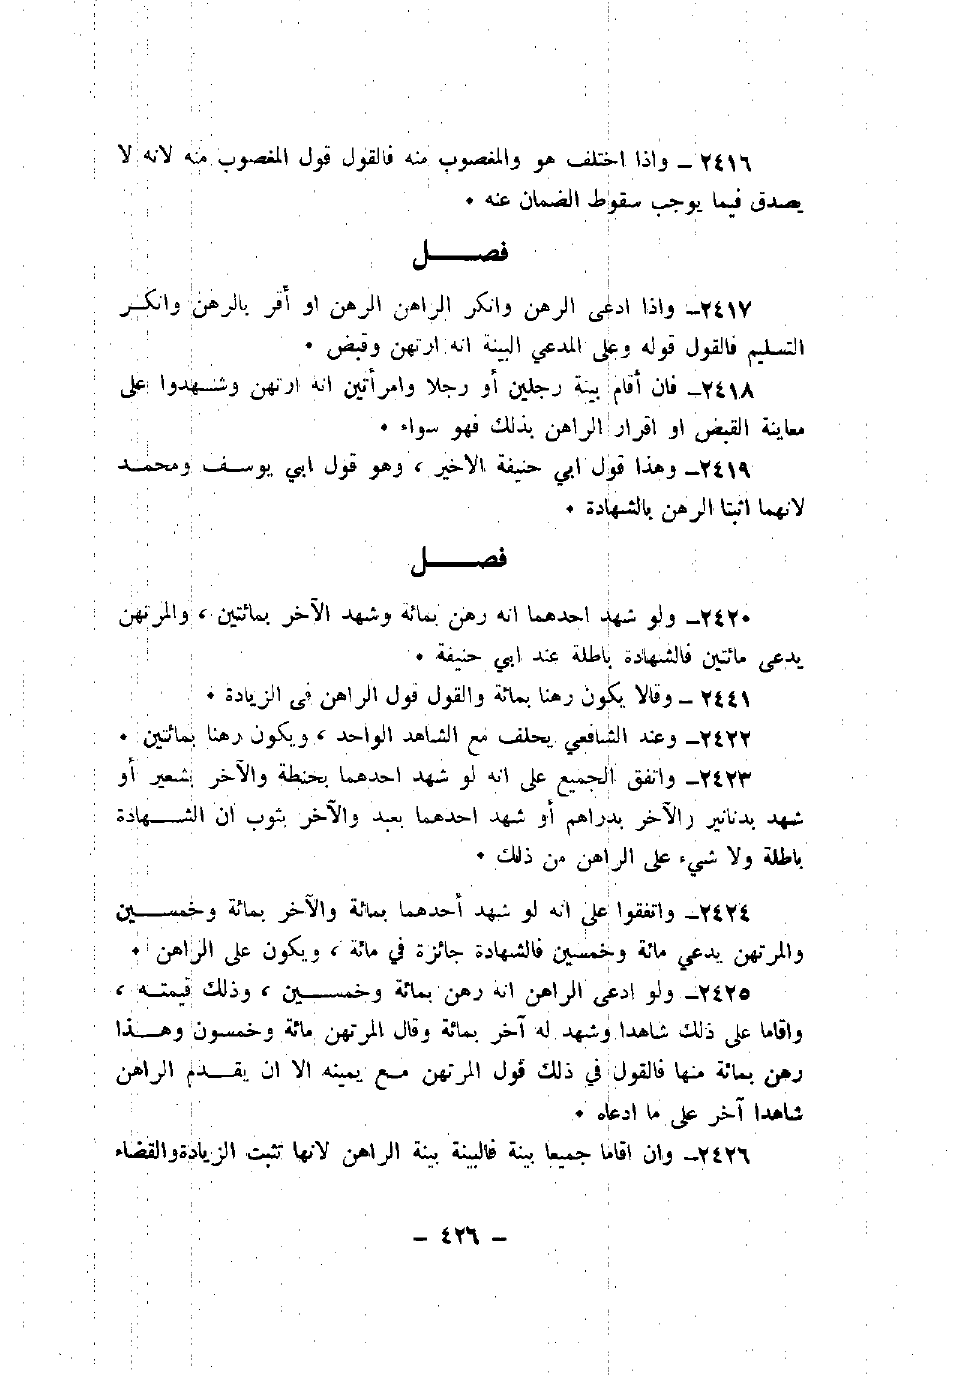 ٢٤١٦ ــ واذا اختلف هو والمغصوب منه فالقول قول المغصوب منه لانه لا
يصدق فيما يوجب سقوط الضمان عنه ٠
فصــــــل
٢٤١٧ــ واذا ادعى الرهن وانكر الراهن الرهن او أقر بالرهن وانكــر
التسليم فالقول قوله وعلى المدعي البينة انه ارتهن وقبض ٠
٢٤١٨ــ فان أقام بينة رجلين أو رجلا وامرأتين انه ارتهن وشــهدوا على
معاينة القبض او اقرار الراهن بذلك فهو سواء ٠
٢٤١٩ــ وهذا قول ابي حنيفة الاخير ، وهو قول ابي يوســف ومحمــد
لانهما اثبتا الرهن بالشهادة ٠
فصــــــل
٢٤٢٠ــ ولو شهد احدهما انه رهن بمائة وشهد الآخر بمائتين ، والمرتهن
يدعى مائتين فالشهادة باطلة عند ابي حنيفة ٠
٢٤٤١ ــ وقالا يكون رهنا بمائة والقول قول الراهن فى الزيادة ٠
٢٤٢٢ــ وعند الشافعي يحلف مع الشاهد الواحد ، ويكون رهنا بمائتين ٠
٢٤٢٣ــ واتفق الجميع على انه لو شهد احدهما بحنطة والآخر بشعير أو
شهد بدنانير رالآخر بدراهم أو شهد احدهما بعبد والآخر بثوب ان الشــــهادة
باطلة ولا شيء على الراهن من ذلك ٠
٢٤٢٤ــ واتفقوا على انه لو شهد أحدهما بمائة والآخر بمائة وخمســــين
والمرتهن يدعي مائة وخمسين فالشهادة جائزة في مائة ، ويكون على الراهن ٠
٢٤٢٥ــ ولو ادعى الراهن انه رهن بمائة وخمســــين ، وذلك قيمتــه ،
واقاما على ذلك شاهدا وشهد له آخر بمائة وقال المرتهن مائة وخمسون وهــذا
رهن بمائة منها فالقول في ذلك قول المرتهن مــع يمينه الا ان يقــدم الراهن
شاهدا آخر على ما ادعاه ٠
٢٤٢٦ــ وان اقاما جميعا بينة فالبينة بينة الراهن لانها تثبت الزيادةوالقضاء
ــ ٤٢٦ ــ